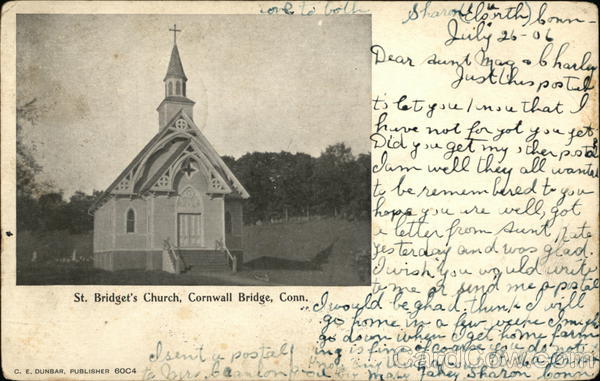 love to both
Sharon (North) Conn-
July 26-06
Dear Aunt Mag & Charley
Just this postal
to let you know that I
have not forgot you yet
Did you get my other postal
I am well they all wanted
to be remembered to you
hope you are well, got
a letter from Aunt Kate
yesterday and was glad.
I wish you would write
to me or send me a postal
I would be glad, think I will
go home in a few weeks I might
go down when I get home
ing is fine of course you do not
I sent a postal
to Mrs.
by Mary Fahey Sharon Conn
St. Bridget's Church, Cornwall Bridge, Conn.
C. E. DUNBAR, PUBLISHER 60C4
CardCow.com